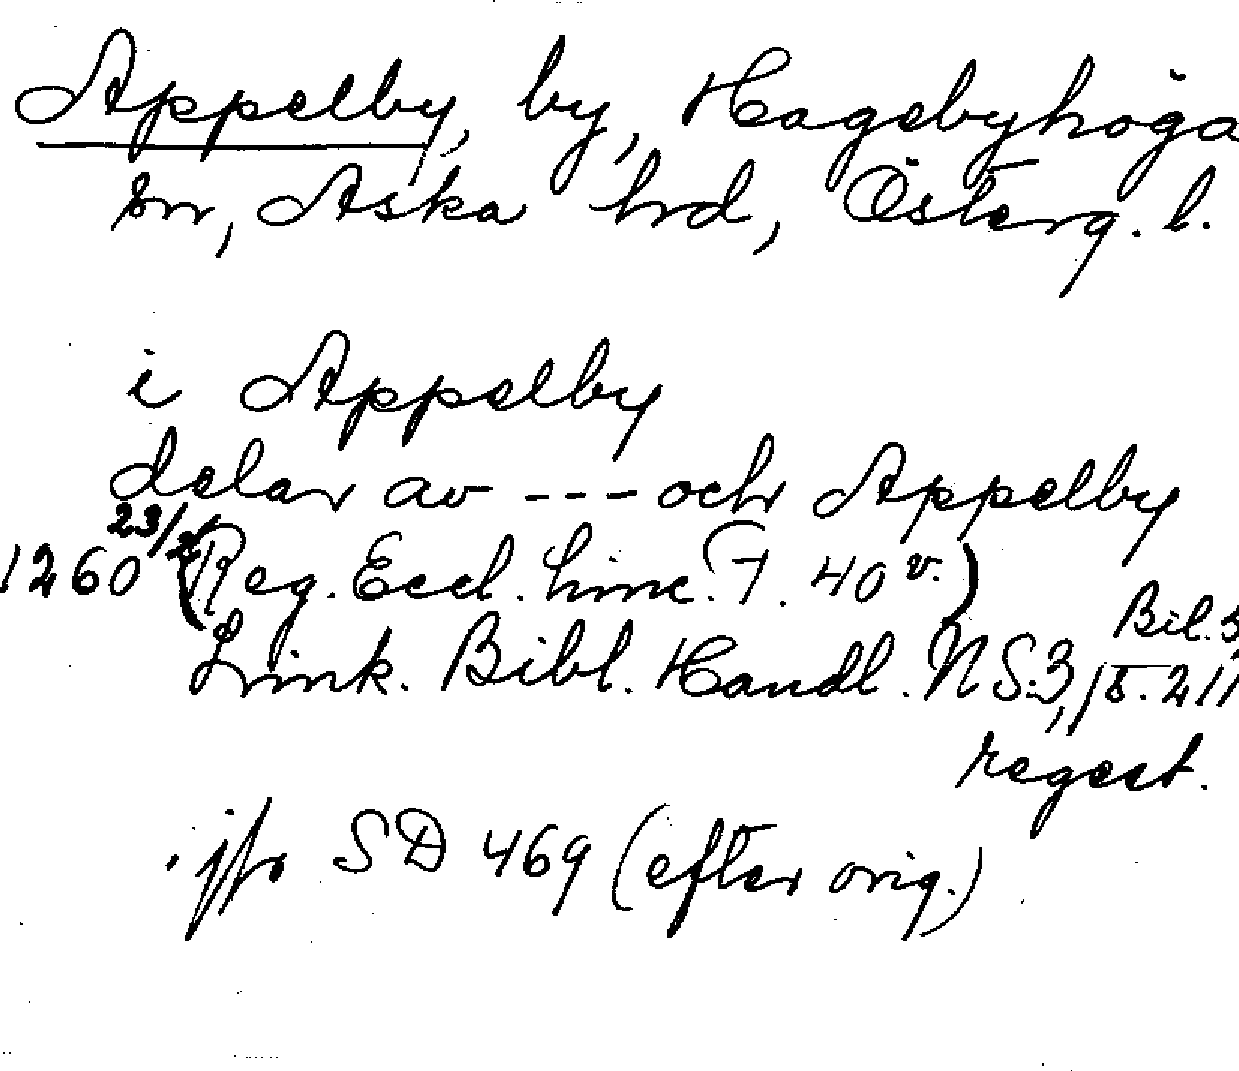 Appelby, by, Hagebyhöga
sn, Aska hrd, Österg. l.
i Appelby
delar av --- och Appelby
1260 23/2 (Reg. Eccl. Linc. f. 40 v.)
Link. Bibl. Handl. NS.3, Bil. 3, s. 211
regest.
jfr SD 469 (efter orig.)